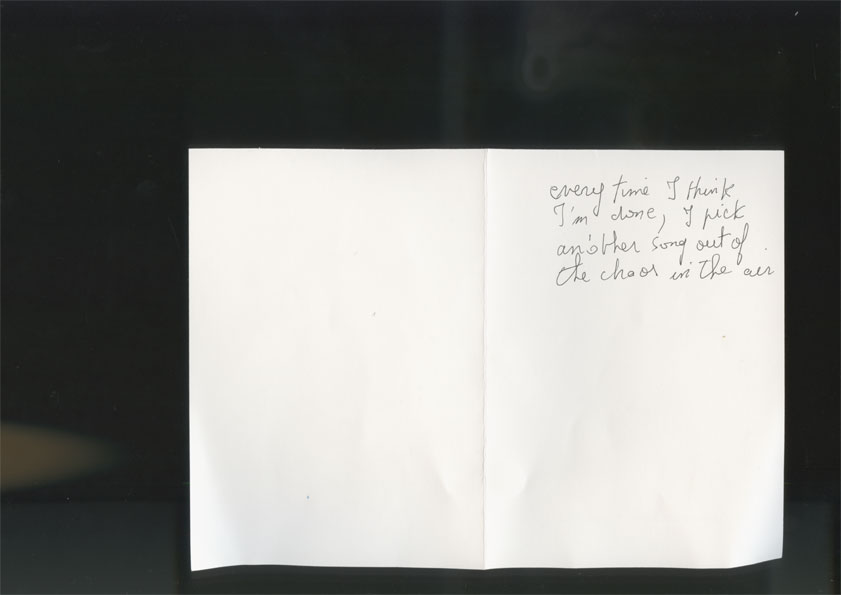 every time I think
I'm done, I pick
another song out of
the chaos in the air